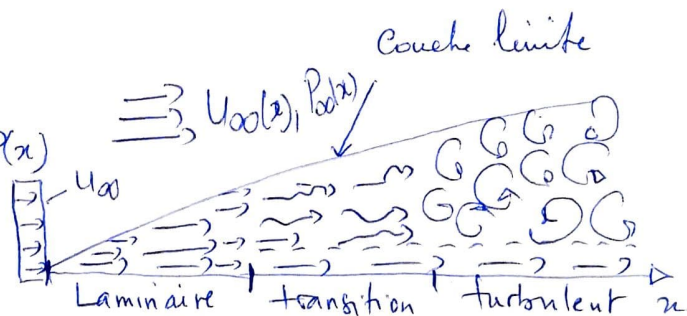 Couche limite
U∞(x), P∞(x)
(x)
U∞
Laminaire transition turbulent x